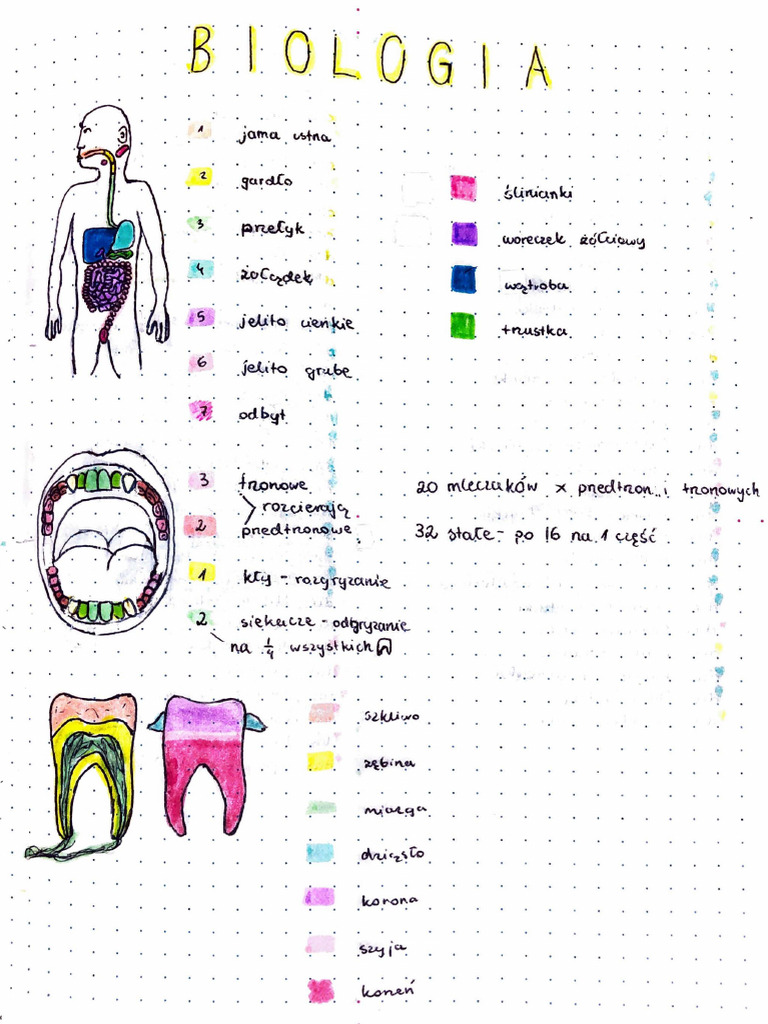 BIOLOGIA
1 jama ustna
2 gardło
3 przełyk
4 żołądek
5 jelito cienkie
6 jelito grube
7 odbyt
ślinianki
woreczek żółciowy
wątroba
trzustka
3 trzonowe
rozcierają
2 przedtrzonowe
1 kły - rozgryzanie
2 siekacze - odgryzanie
na 1/4 wszystkich
20 mleczaków x przedtrzon. i trzonowych
32 stałe - po 16 na 1 część
szkliwo
zębina
miazga
dziąsło
korona
szyja
korzeń